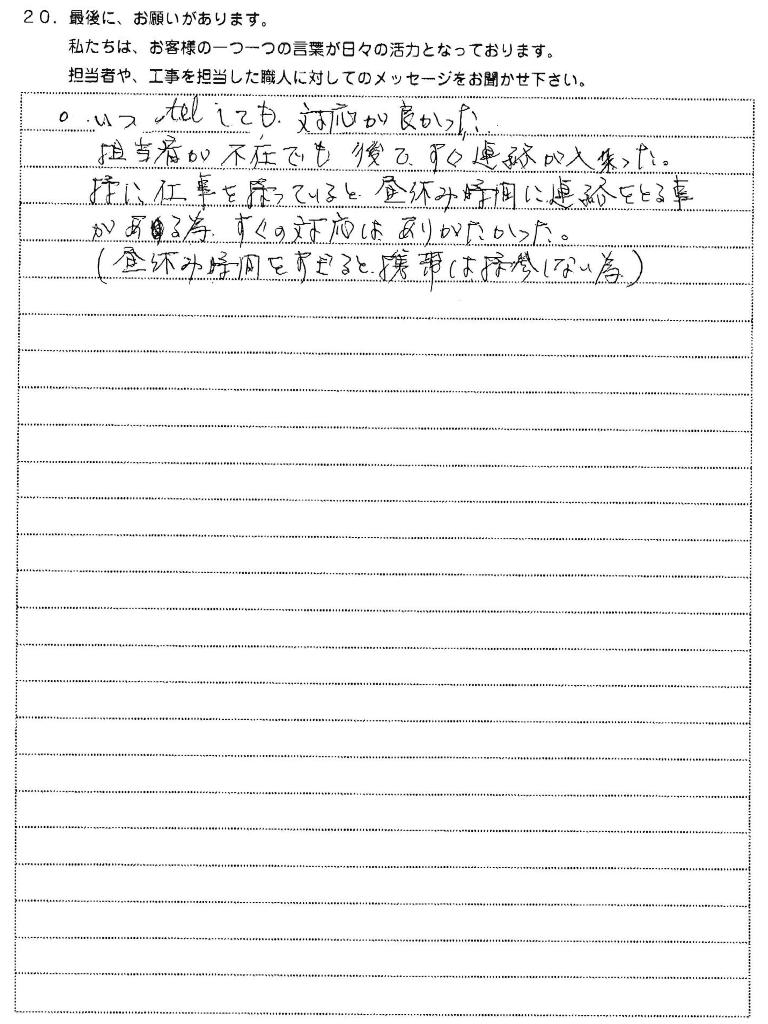 20. 最後に、お願いがあります。
私たちは、お客様の一つ一つの言葉が日々の活力となっております。
担当者や、工事を担当した職人に対してのメッセージをお聞かせ下さい。
○ いつ telしても、対応が良かった。
担当者が不在でも 後で、すぐ連絡が入
特に仕事を持っていると、昼休み時間に連絡をとる事
がある為、すぐの対応はありがたかった。
(昼休み時間をすぎると、携帯は しない為)